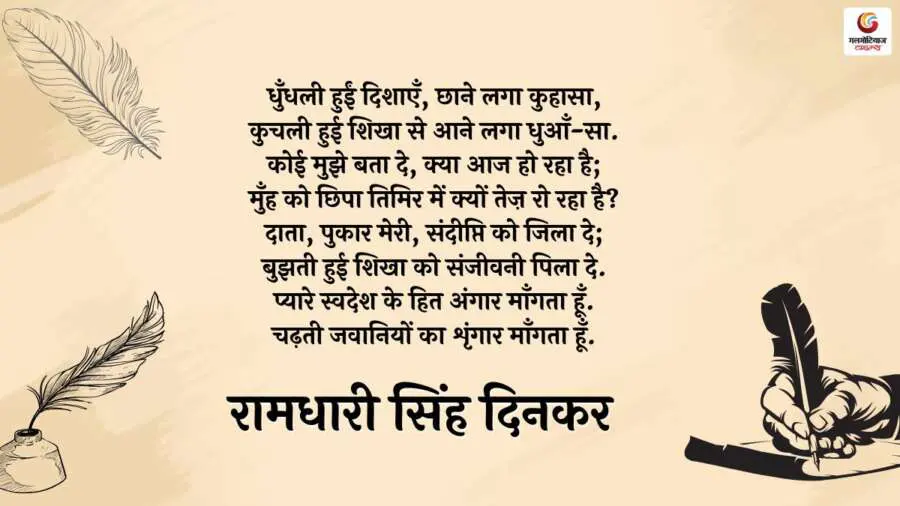 गलगोटियाज
टाइम्स
धुँधली हुईं दिशाएँ, छाने लगा कुहासा,
कुचली हुई शिखा से आने लगा धुआँ-सा.
कोई मुझे बता दे, क्या आज हो रहा है;
मुँह को छिपा तिमिर में क्यों तेज़ रो रहा है?
दाता, पुकार मेरी, संदीप्ति को जिला दे;
बुझती हुई शिखा को संजीवनी पिला दे.
प्यारे स्वदेश के हित अंगार माँगता हूँ.
चढ़ती जवानियों का शृंगार माँगता हूँ.
रामधारी सिंह दिनकर